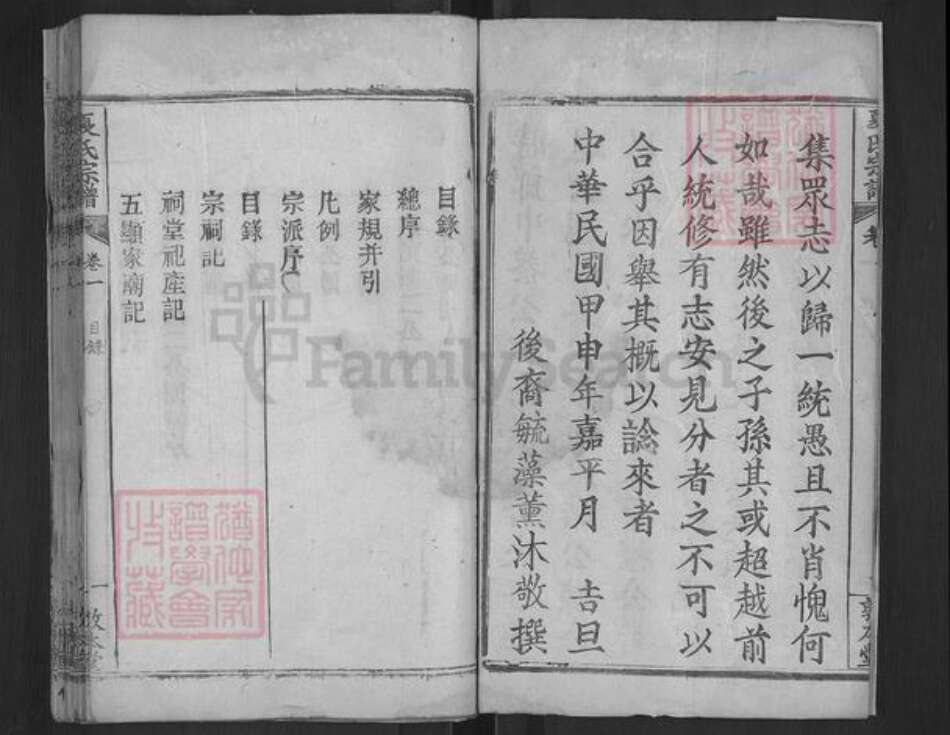 集眾志以歸一統愚且不肖愧何
如哉雖然後之子孫其或超越前
人統修有志安見分者之不可以
合乎因舉其概以諗來者
中華民國甲申年嘉平月 吉旦
後裔毓藻薰沐敬撰
目錄
總序
家規并引
凡例
宗派序
目錄
宗祠記
祠堂祀產記
五顯家廟記
氏宗譜
卷一
目錄
一
FamilySearch
譜學會
收藏